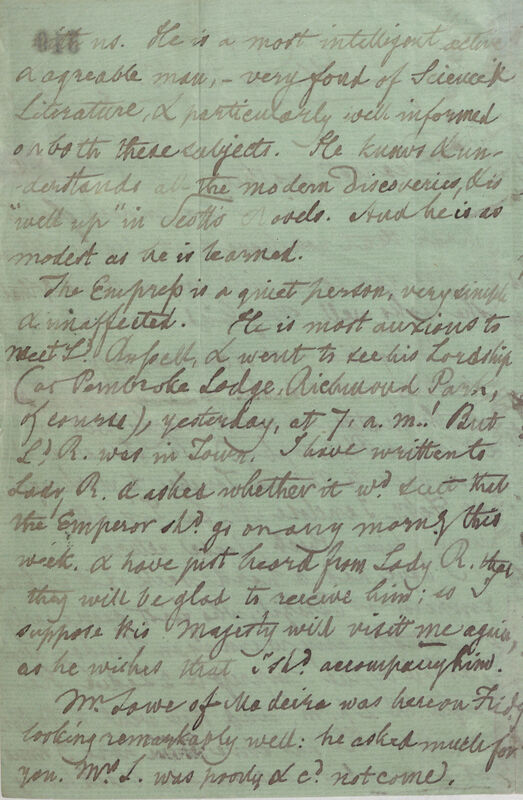 with us. He is a most intelligent active
& agreable man, – very fond of Science &
Literature, & particularly well informed
on both these subjects. He knows & un-
derstands all the modern discoveries, & is
"well up" in Scott's Novels. And he is as
modest as he is learned.
The Empress is a quiet person, very simple
& unaffected. He is most anxious to
meet Ld. Russell, & went to see his Lordship
(at Pembroke Lodge, Richmond Park,
of course), yesterday, at 7, a.m.! But
Ld. R. was in Town. I have written to
Lady R. & asked whether it wd. suit that
the Emperor shd. go on any morng. this
week. & have just heard from Lady R. that
they will be glad to receive him; so I
suppose His Majesty will visit me again,
as he wishes that I shd. accompany him.
Mr. Lowe of Madeira was here on Fridy.
looking remarkably well: he asked much for
you. Mrs. L. was poorly & cd. not come.